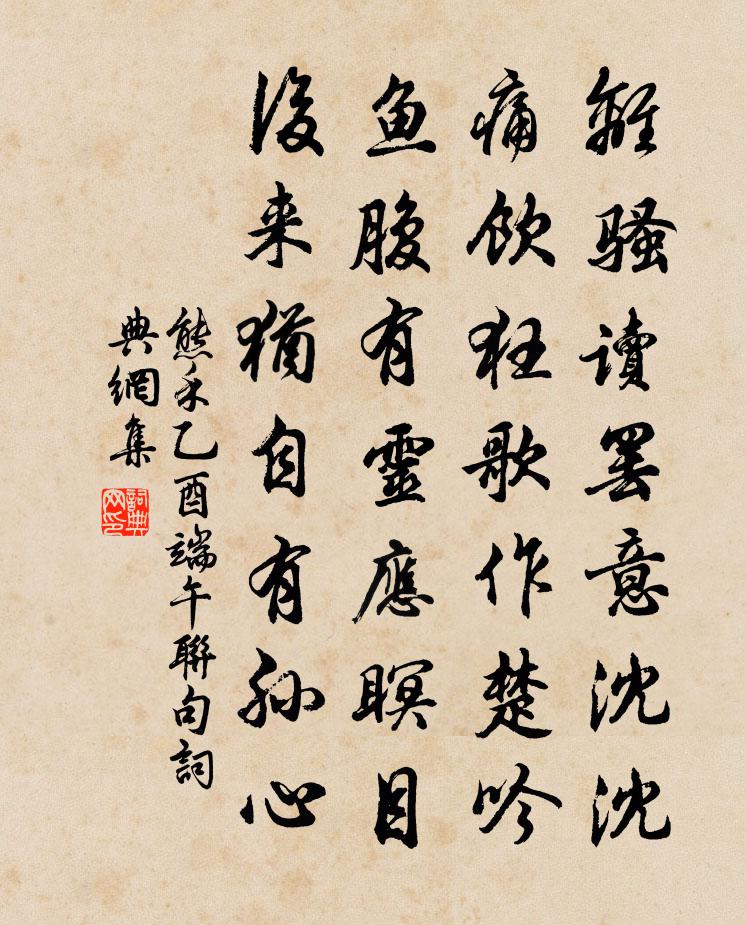 離騷讀罷意沈沈
痛飲狂歌作楚吟
魚腹有靈應瞑目
後来猶自有孫心
熊禾乙酉端午聯句詞
典網集
詞典網印